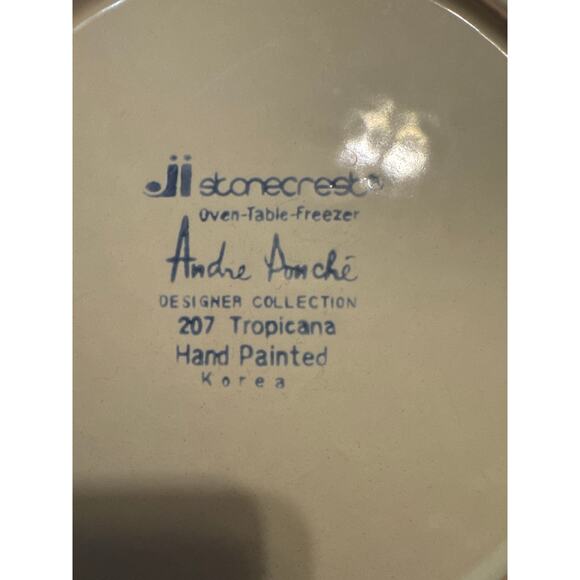 ji stonecrest®
Oven-Table-Freezer
Andre Ponché
DESIGNER COLLECTION
207 Tropicana
Hand Painted
Korea